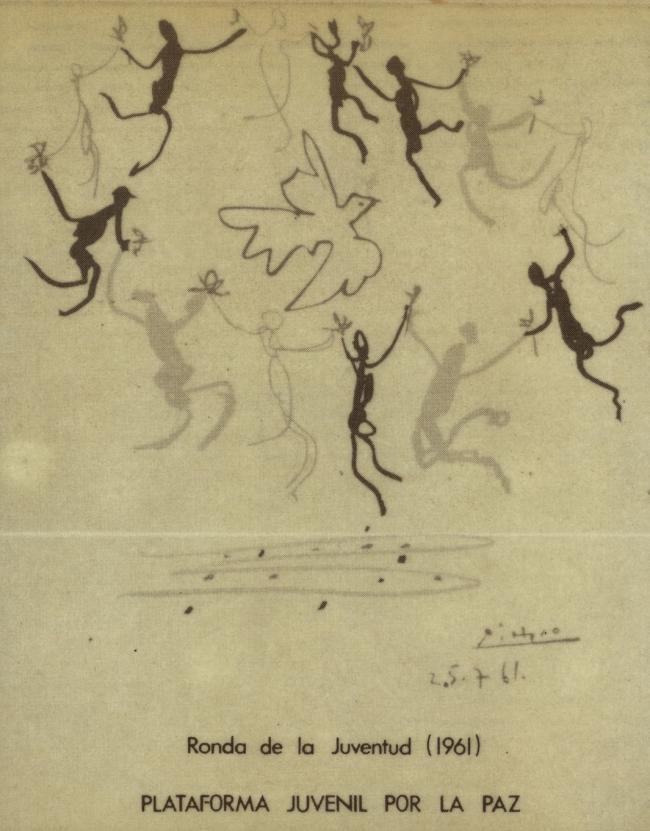 Picasso
25.7.61.
Ronda de la Juventud (1961)
PLATAFORMA JUVENIL POR LA PAZ